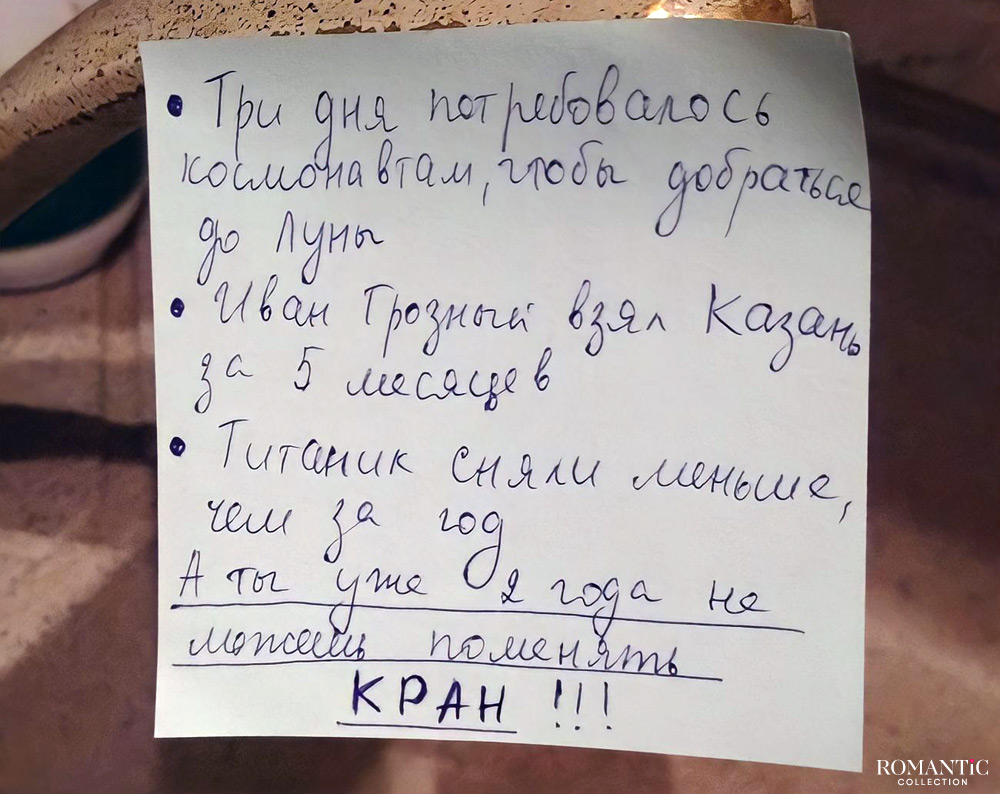 • Три дня потребовалось
космонавтам, чтобы добраться
до Луны
• Иван Грозный взял Казань
за 5 месяцев
• Титаник сняли меньше,
чем за год
А ты уже 2 года не
можешь поменять
КРАН !!!
ROMANTiC
COLLECTION